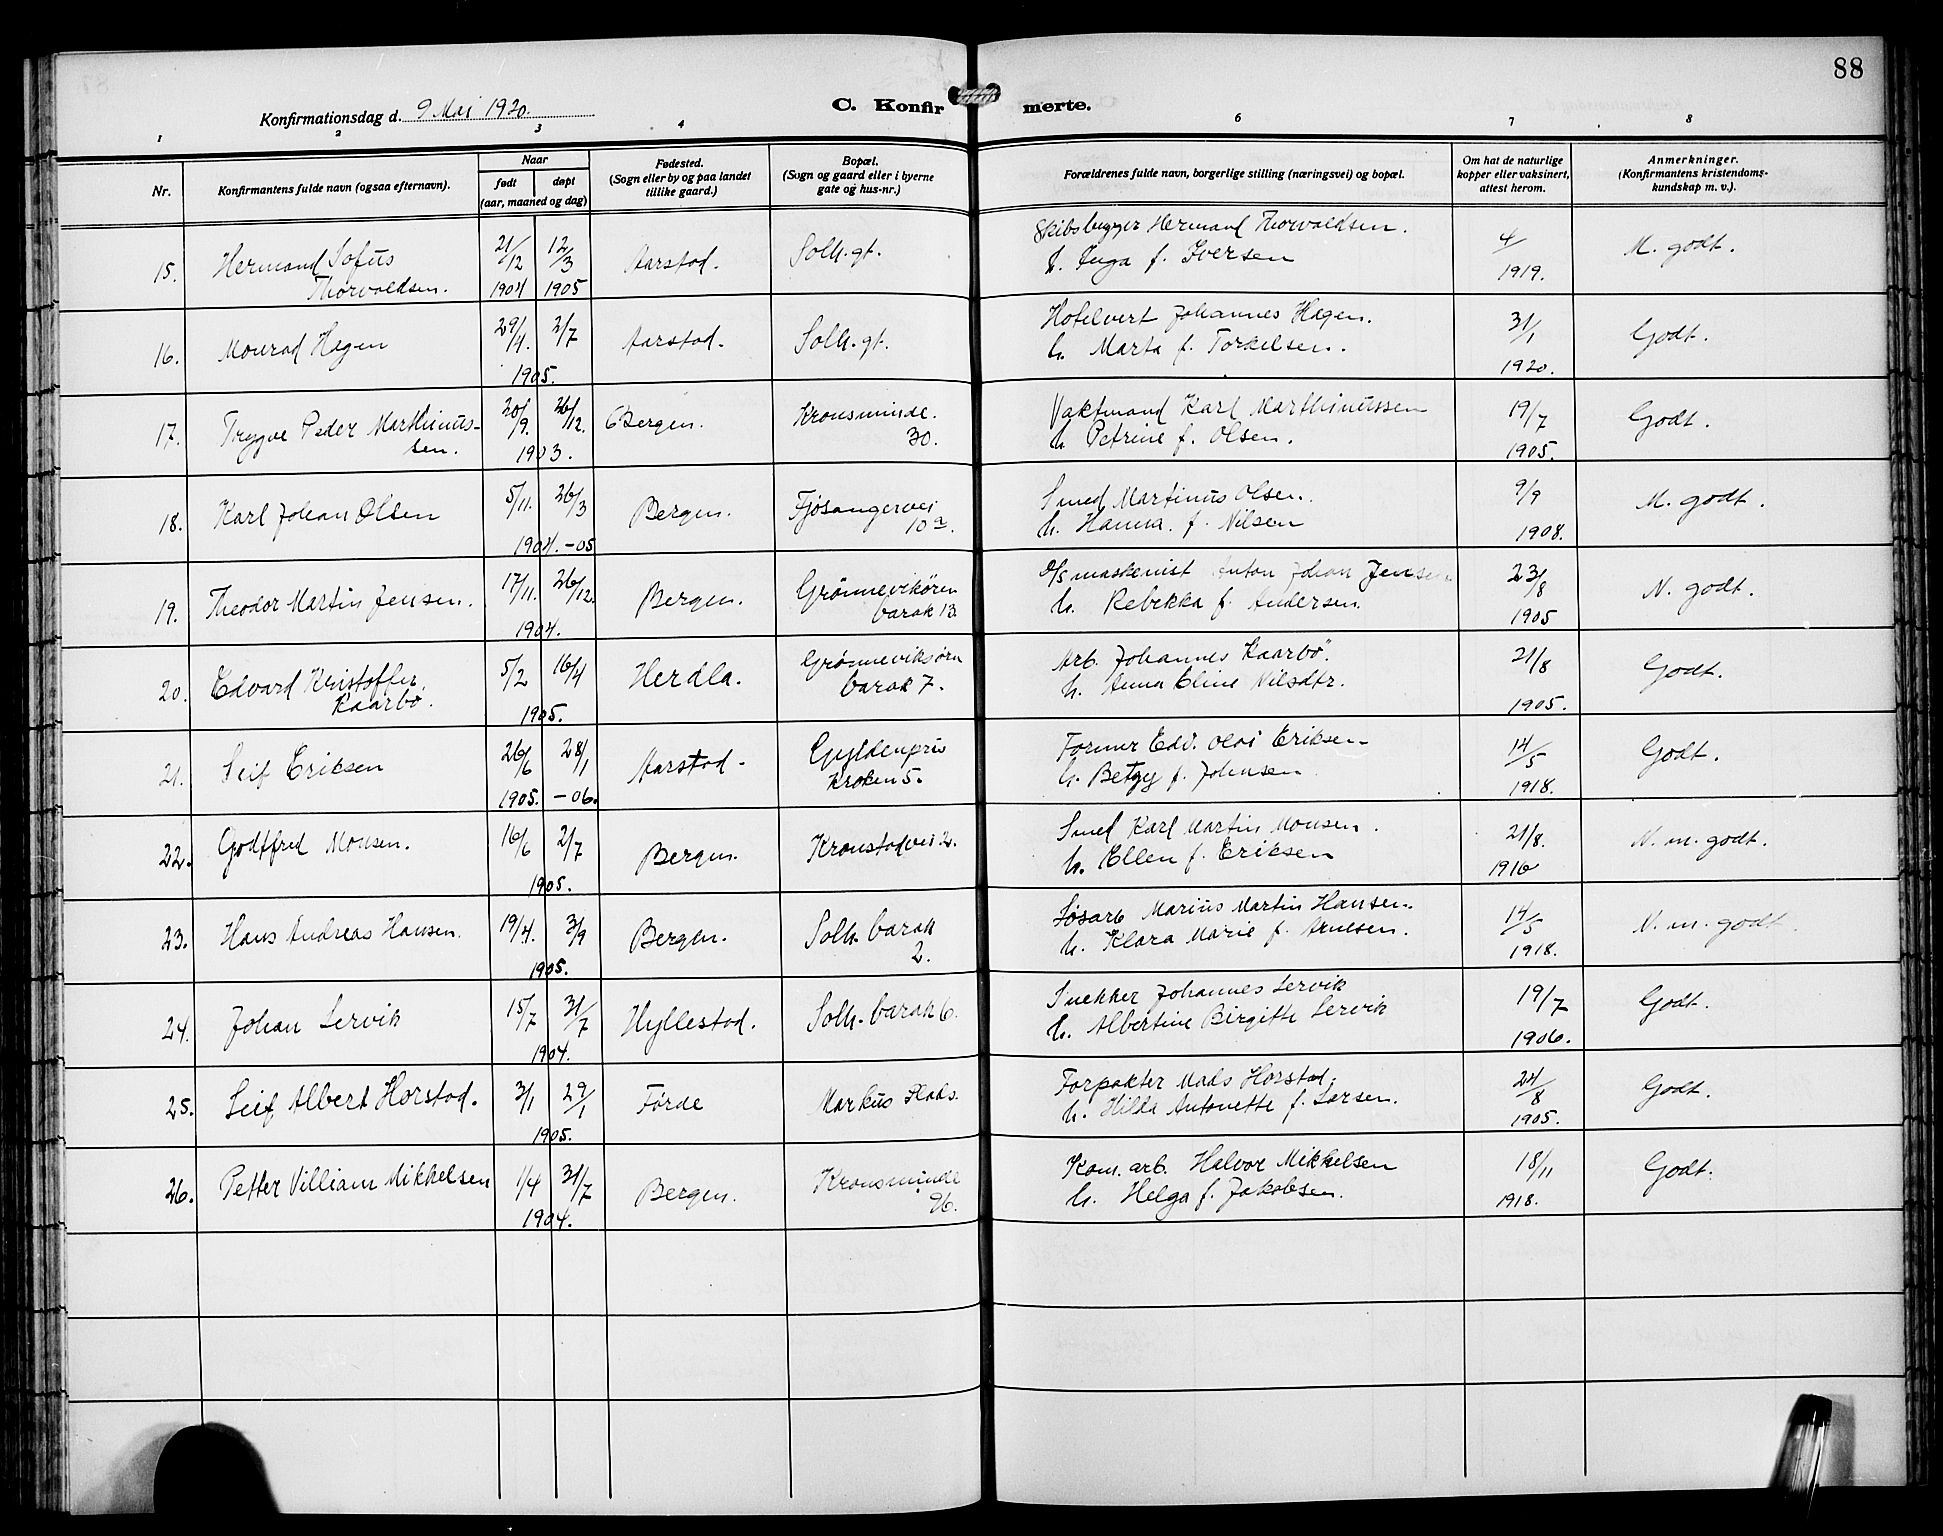 88
Konfirmationsdag d. 9 Mai 1920.
C. Konfirmerte.
1 2 3 4 6 7 8
Nr.
Konfirmantens fulde navn (ogsaa efternavn).
Naar
født døpt
(aar, maaned og dag)
Fødested.
(Sogn eller by og paa landet
tillike gaard.)
Bopæl.
(Sogn og gaard eller i byerne
gate og hus-nr.)
Forældrenes fulde navn, borgerlige stilling (næringsvei) og bopæl.
Om hat de naturlige
kopper eller vaksinert,
attest herom.
Anmerkninger.
(Konfirmantens kristendoms-
kundskap m. v.).
15. Hermand Sofus 21/12 12/3 Aarstad. Solh. gt. Skibsbygger Hermand Thorvaldsen. 4/ M. godt.
Thorvaldsen. 1904 1905 h. Inga f. Iversen 1919.
16. Monrad Hagen 29/4. 2/7 Aarstad. Solh. gt. Hotelvert Johannes Hagen. 31/1 Godt.
1905. h. Marta f. Torkelsen. 1920.
17. Trygve Peder Marthinus- 20/9. 26/12. Bergen. Kronsminde. Vaktmand Karl Marthinussen 19/7 Godt.
sen. 1903. 30. h. Petrine f. Olsen. 1905.
18. Karl Johan Olsen 5/11. 26/3 Bergen. Fjøsangervei Smed Martinus Olsen. 9/9 M. godt.
1904. -05 10a. h. Hanna. f. Nilsen 1908.
19. Theodor Martin Jensen. 17/11. 26/12. Bergen. Grønnevikören D/S maskinist Anton Johan Jensen 23/8 N. godt.
1904. barak 13. h. Rebekka f. Andersen. 1905
20. Edvard Kristoffer 5/2 16/4 Herdla. Grønneviksørn Arb. Johannes Kaarbö. 21/8 Godt.
Kaarbö. 1905. barak 7. h. Anna Eline Nilsdtr. 1905.
21. Leif Eriksen 26/6 28/1 Aarstad- Gyldenpris Former Edv. Olai Eriksen- 14/5 Godt.
1905. -06. Kroken 5. h. Betzy f. Johnsen 1918.
22. Godtfred Monsen. 16/6 2/7 Bergen. Kronstadvei 2. Smed Karl Martin Monsen. 21/8. N. m. godt.
1905. h. Ellen f. Eriksen 1916
23. Hans Andreas Hansen. 19/4. 3/9 Bergen. Solh. barak Løsarb Marius Martin Hansen. 14/5 N. m. godt.
1905. 2. h. Klara Marie f. Arnesen. 1918.
24. Johan Lervik 15/7 31/7 Hyllestad. Solh. barak 6. Snekker Johannes Lervik 19/7 Godt.
1904. h. Albertine Birgitte Lervik 1906.
25. Leif Albert Horstad. 3/1 29/1 Förde Markus Plads. Forpakter Mads Horstad. 24/8 Godt.
1905. h. Hilda Antonette f. Larsen. 1905.
26. Petter Villiam Mikkelsen 1/4 31/7 Bergen. Kronsminde Kom. arb. Halvor Mikkelsen 18/11 Godt.
1904. 96. h. Helga f. Jakobsen. 1918.